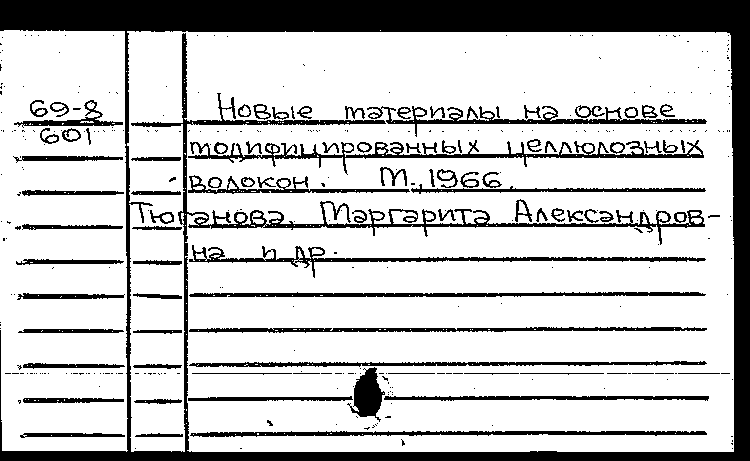 69-8
601
Новые материалы на основе
модифицированных целлюлозных
волокон. М., 1966.
Тюганова, Маргарита Александров-
на и др.